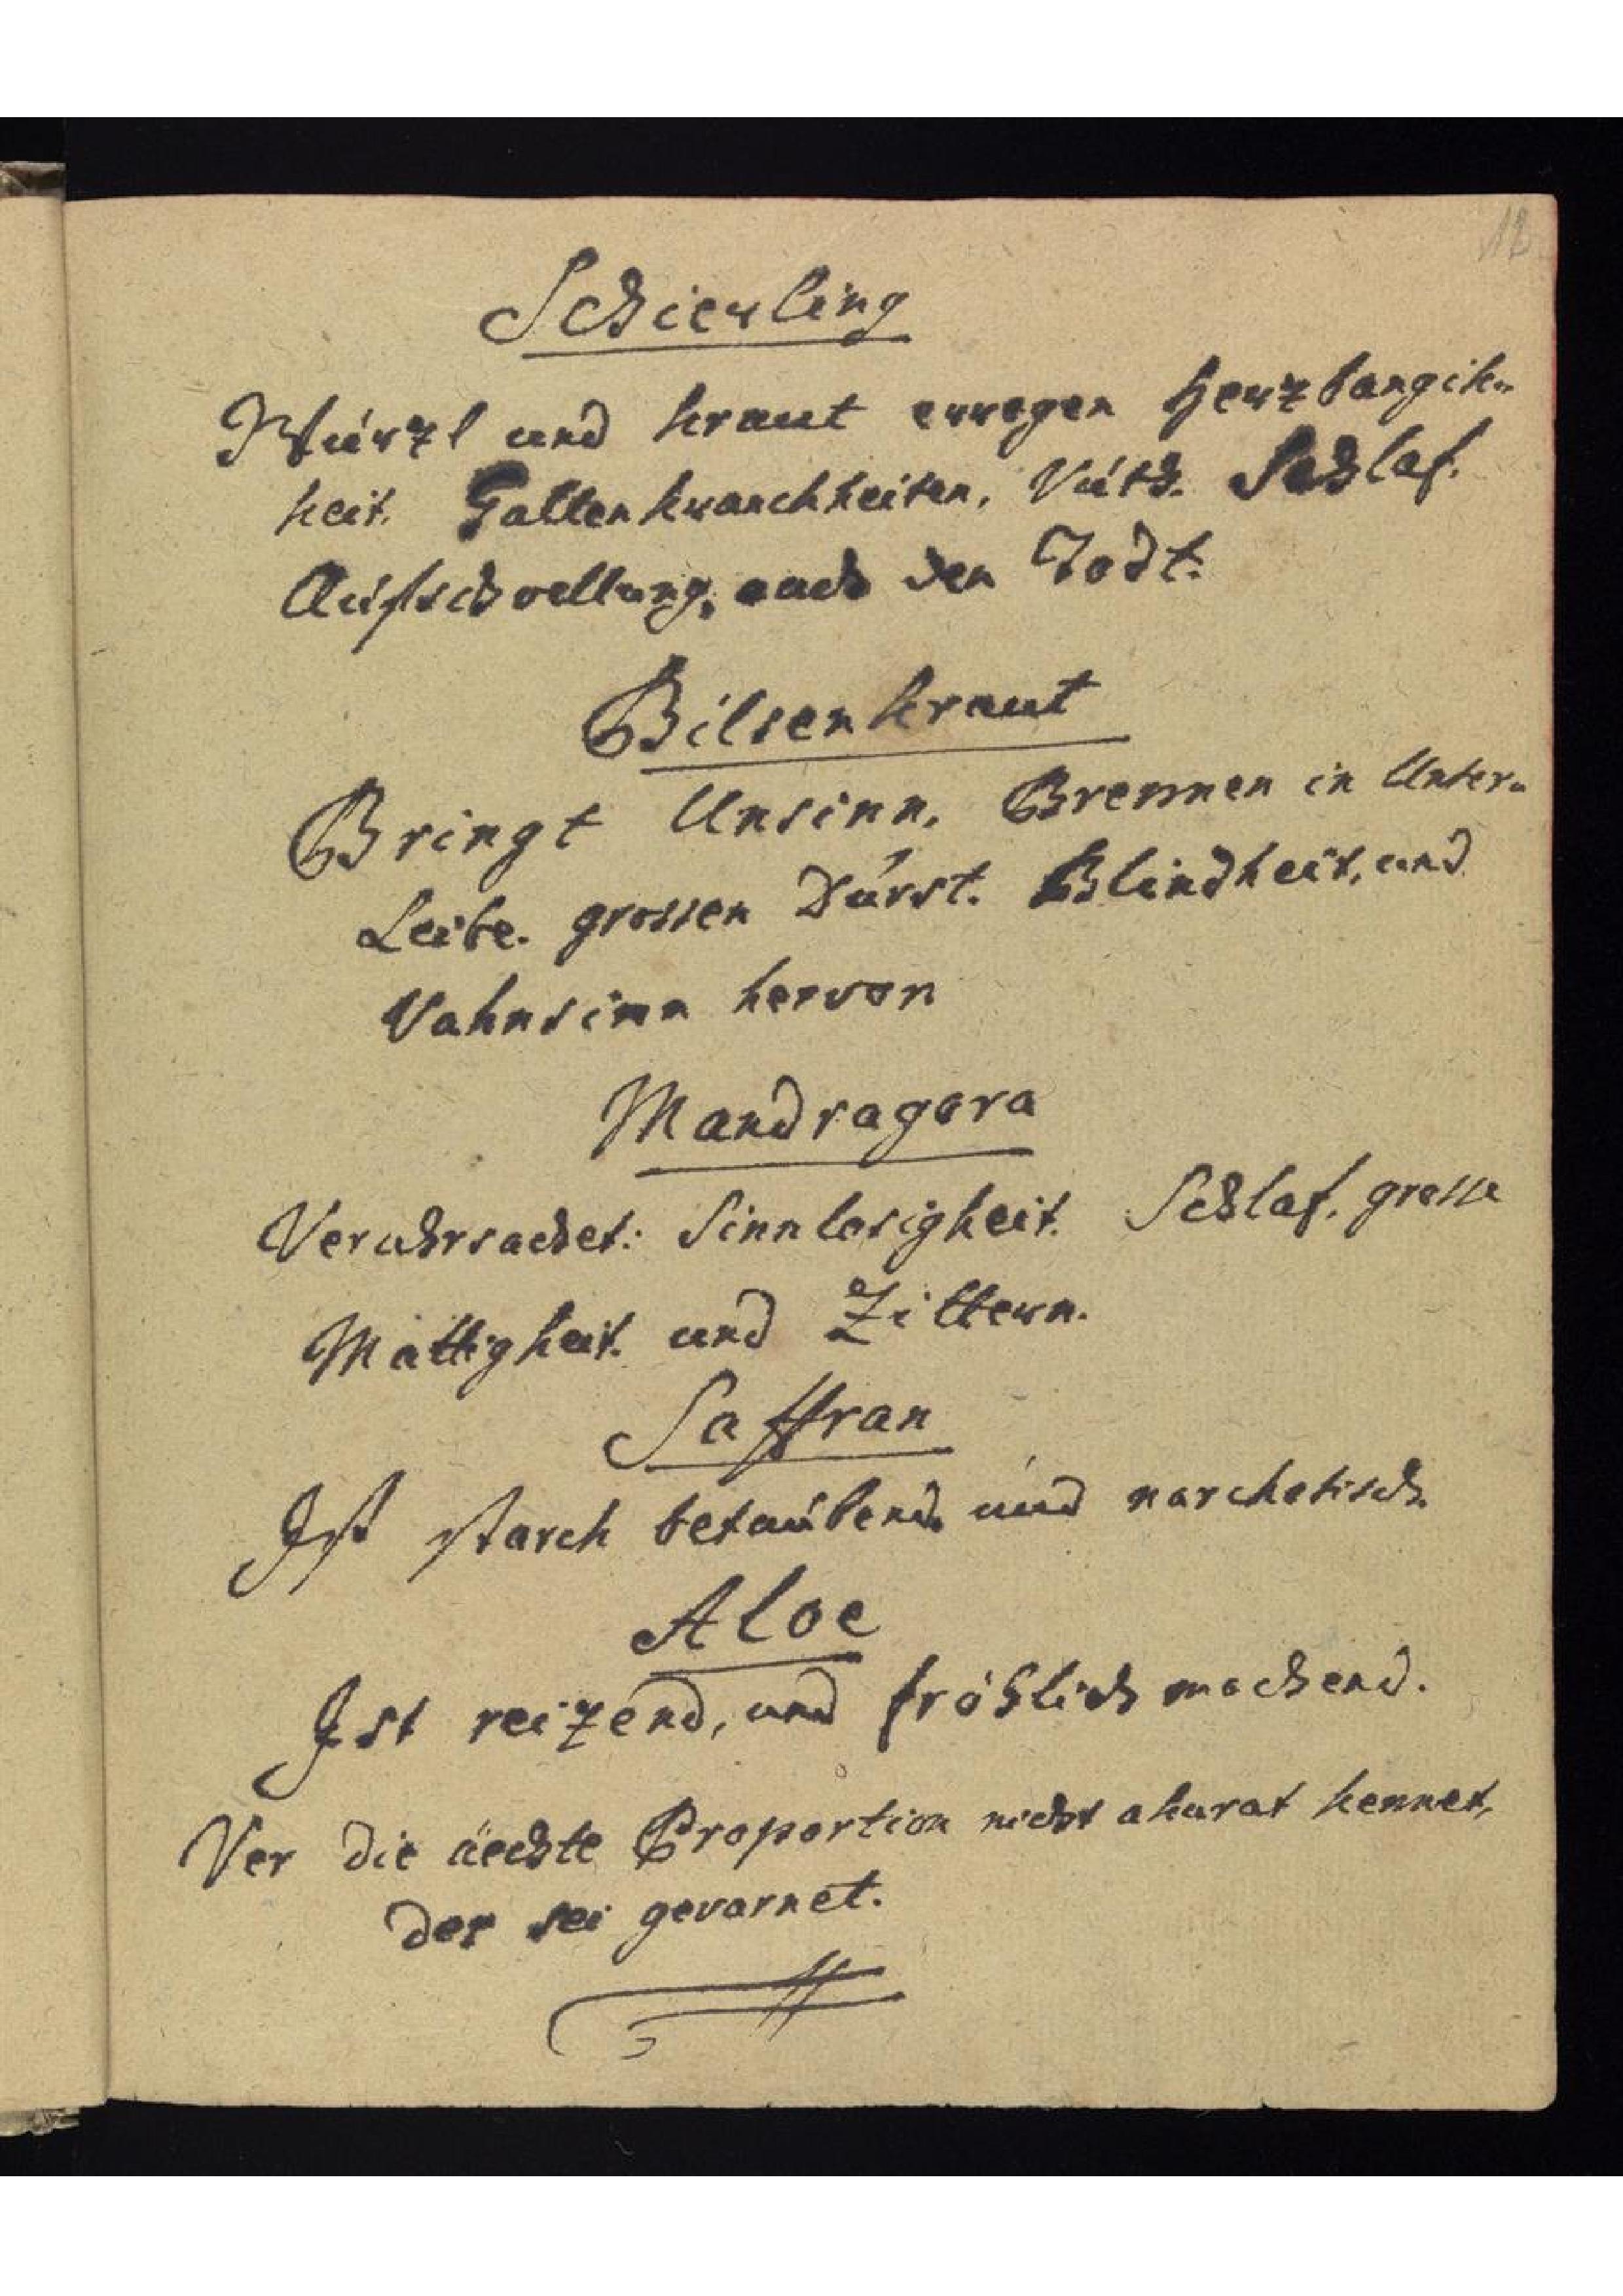 12
Schierling
Wúrzl und kraut erregen Herzbangik-
keit. Gallenkranckheiten, Vúth. Schlaf.
Aúfschvellung, auch den Todt.
Bilsenkraut
Bringt Unsinn, Brennen in Unter-
Leibe. grossen Dúrst. Blindheit, und
Vahnsinn hervor
Mandragora
Veruhrsachet: Sinnlosigkeit. Schlaf, grosse
Mattigkeit. und Zittern.
Saffran
Ist starck betaúbend, und narckotisch.
Aloe
Ist reizend, und fröhlich machend.
Ver die äechte Proportion nicht akurat kennet,
der sei gevarnet.